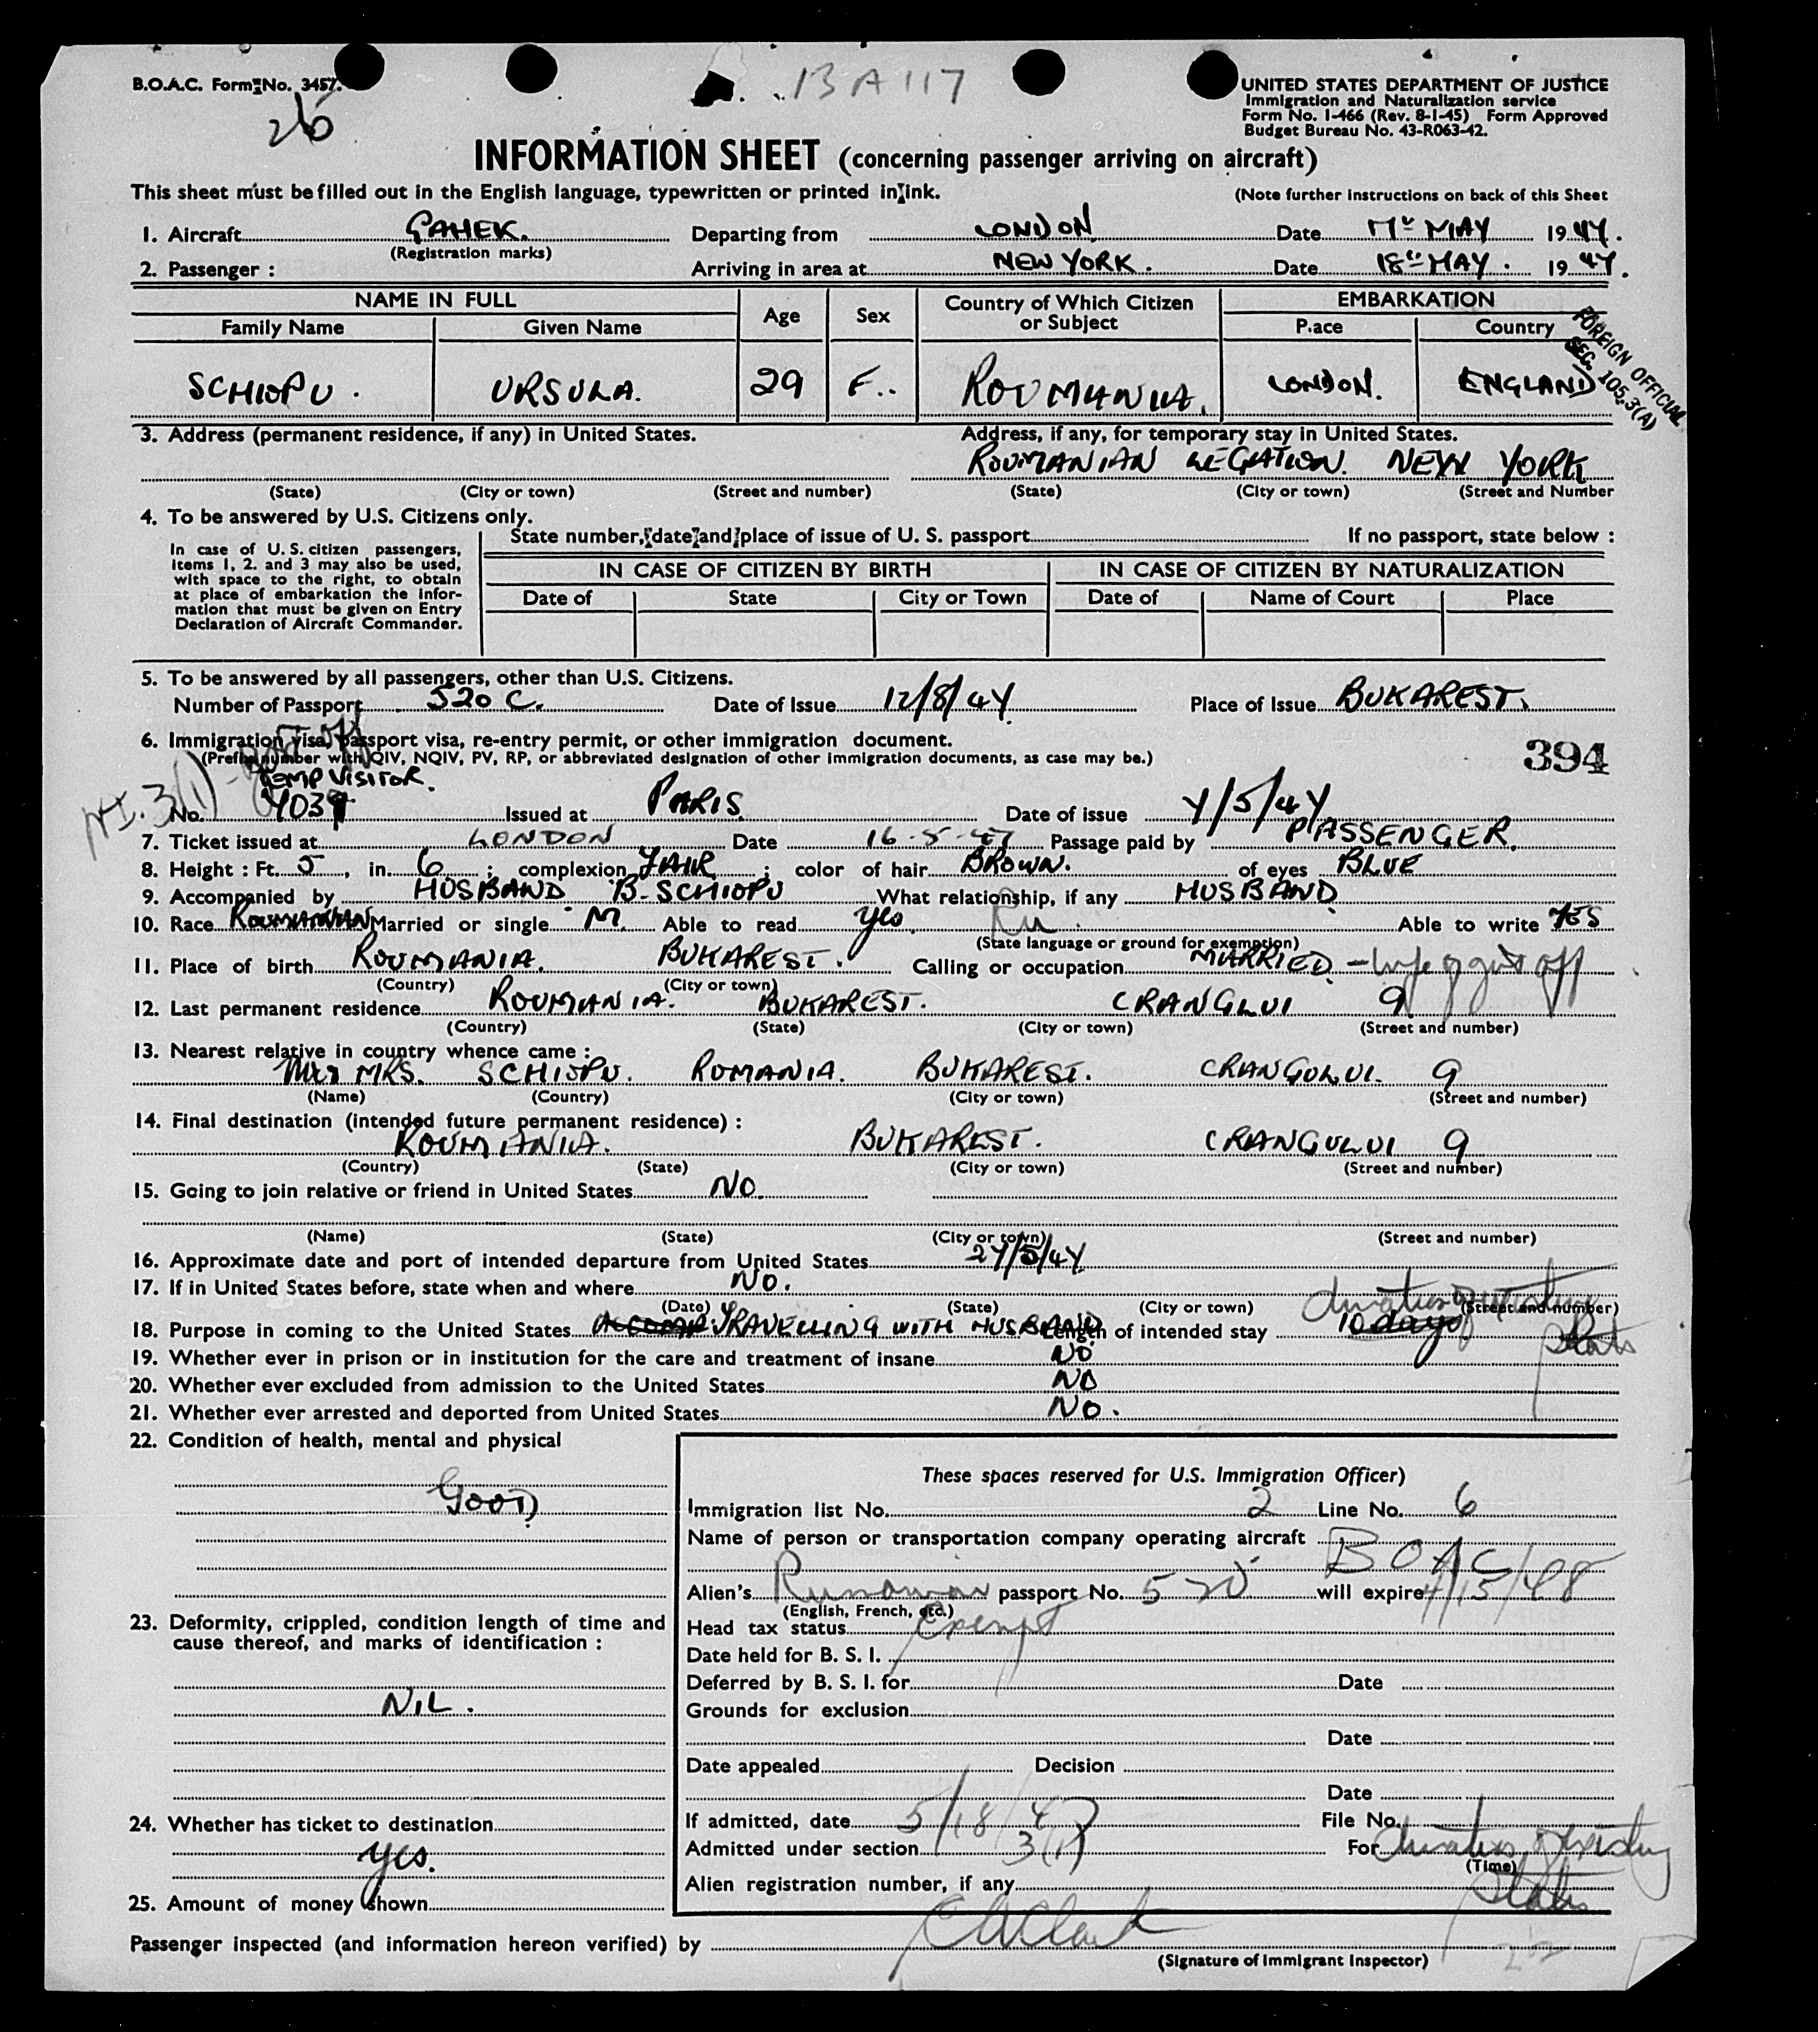 B.O.A.C. Form No. 3457.
26
13 A 117
UNITED STATES DEPARTMENT OF JUSTICE
Immigration and Naturalization service
Form No. I-466 (Rev. 8-1-45) Form Approved
Budget Bureau No. 43-R063-42.
INFORMATION SHEET (concerning passenger arriving on aircraft)
This sheet must be filled out in the English language, typewritten or printed in ink.
(Note further instructions on back of this Sheet
1. Aircraft GAHEK. Departing from LONDON Date 17th MAY 1947.
(Registration marks)
2. Passenger : Arriving in area at NEW YORK. Date 18th MAY. 1947.
NAME IN FULL Age Sex Country of Which Citizen or Subject EMBARKATION
Family Name Given Name P.ace Country
SCHIOPU. URSULA. 29 F.. ROUMANIA. LONDON. ENGLAND
FOREIGN OFFICIAL
SEC. 105.3(A)
3. Address (permanent residence, if any) in United States. Address, if any, for temporary stay in United States.
ROUMANIAN LEGATION. NEW YORK
(State) (City or town) (Street and number) (State) (City or town) (Street and Number
4. To be answered by U.S. Citizens only.
In case of U.S. citizen passengers, items 1, 2. and 3 may also be used, with space to the right, to obtain at place of embarkation the infor-mation that must be given on Entry Declaration of Aircraft Commander.
State number, date and place of issue of U. S. passport If no passport, state below :
IN CASE OF CITIZEN BY BIRTH IN CASE OF CITIZEN BY NATURALIZATION
Date of State City or Town Date of Name of Court Place
5. To be answered by all passengers, other than U.S. Citizens.
Number of Passport 520 C. Date of Issue 12/8/47 Place of Issue BUKAREST.
6. Immigration visa, passport visa, re-entry permit, or other immigration document.
(Prefix number with QIV, NQIV, PV, RP, or abbreviated designation of other immigration documents, as case may be.)
394
3(1) - gov't off
TEMP VISITOR.
No. 7039 Issued at PARIS. Date of issue 7/5/47
7. Ticket issued at LONDON Date 16-5-47 Passage paid by PASSENGER.
8. Height : Ft. 5, in. 6 ; complexion FAIR ; color of hair BROWN. of eyes BLUE
9. Accompanied by HUSBAND B. SCHIOPU What relationship, if any HUSBAND
10. Race ROUMANIAN Married or single M. Able to read Yes. Ru. Able to write YES
(State language or ground for exemption)
11. Place of birth ROUMANIA. BUKAREST. Calling or occupation MARRIED - wife of gov't off
(Country) (City or town)
12. Last permanent residence ROUMANIA. BUKAREST. CRANGLUI 9
(Country) (State) (City or town) (Street and number)
13. Nearest relative in country whence came :
MRS. SCHIOPU. ROMANIA. BUKAREST. CRANGULUI. 9
(Name) (Country) (City or town) (Street and number)
14. Final destination (intended future permanent residence) :
ROUMANIA. BUKAREST. CRANGULUI 9
(Country) (State) (City or town) (Street and number)
15. Going to join relative or friend in United States NO.
(Name) (State) (City or town) (Street and number)
16. Approximate date and port of intended departure from United States 27/5/47
17. If in United States before, state when and where NO.
(Date) (State) (City or town) (Street and number)
18. Purpose in coming to the United States TRAVELLING WITH HUSBAND Length of intended stay 10 days duration of existing status
19. Whether ever in prison or in institution for the care and treatment of insane NO
20. Whether ever excluded from admission to the United States NO
21. Whether ever arrested and deported from United States NO.
22. Condition of health, mental and physical
GOOD
23. Deformity, crippled, condition length of time and cause thereof, and marks of identification :
NIL.
24. Whether has ticket to destination
Yes.
25. Amount of money shown
These spaces reserved for U.S. Immigration Officer)
Immigration list No. 2 Line No. 6
Name of person or transportation company operating aircraft BOAC
Alien's passport No. 520 will expire 4/15/48
(English, French, etc.)
Head tax status Exempt
Date held for B. S. I.
Deferred by B. S. I. for Date
Grounds for exclusion
Date
Date appealed Decision
Date
If admitted, date 5/18/47 File No.
Admitted under section 3(1) For duration of existing status
(Time)
Alien registration number, if any
Passenger inspected (and information hereon verified) by
(Signature of Immigrant Inspector)